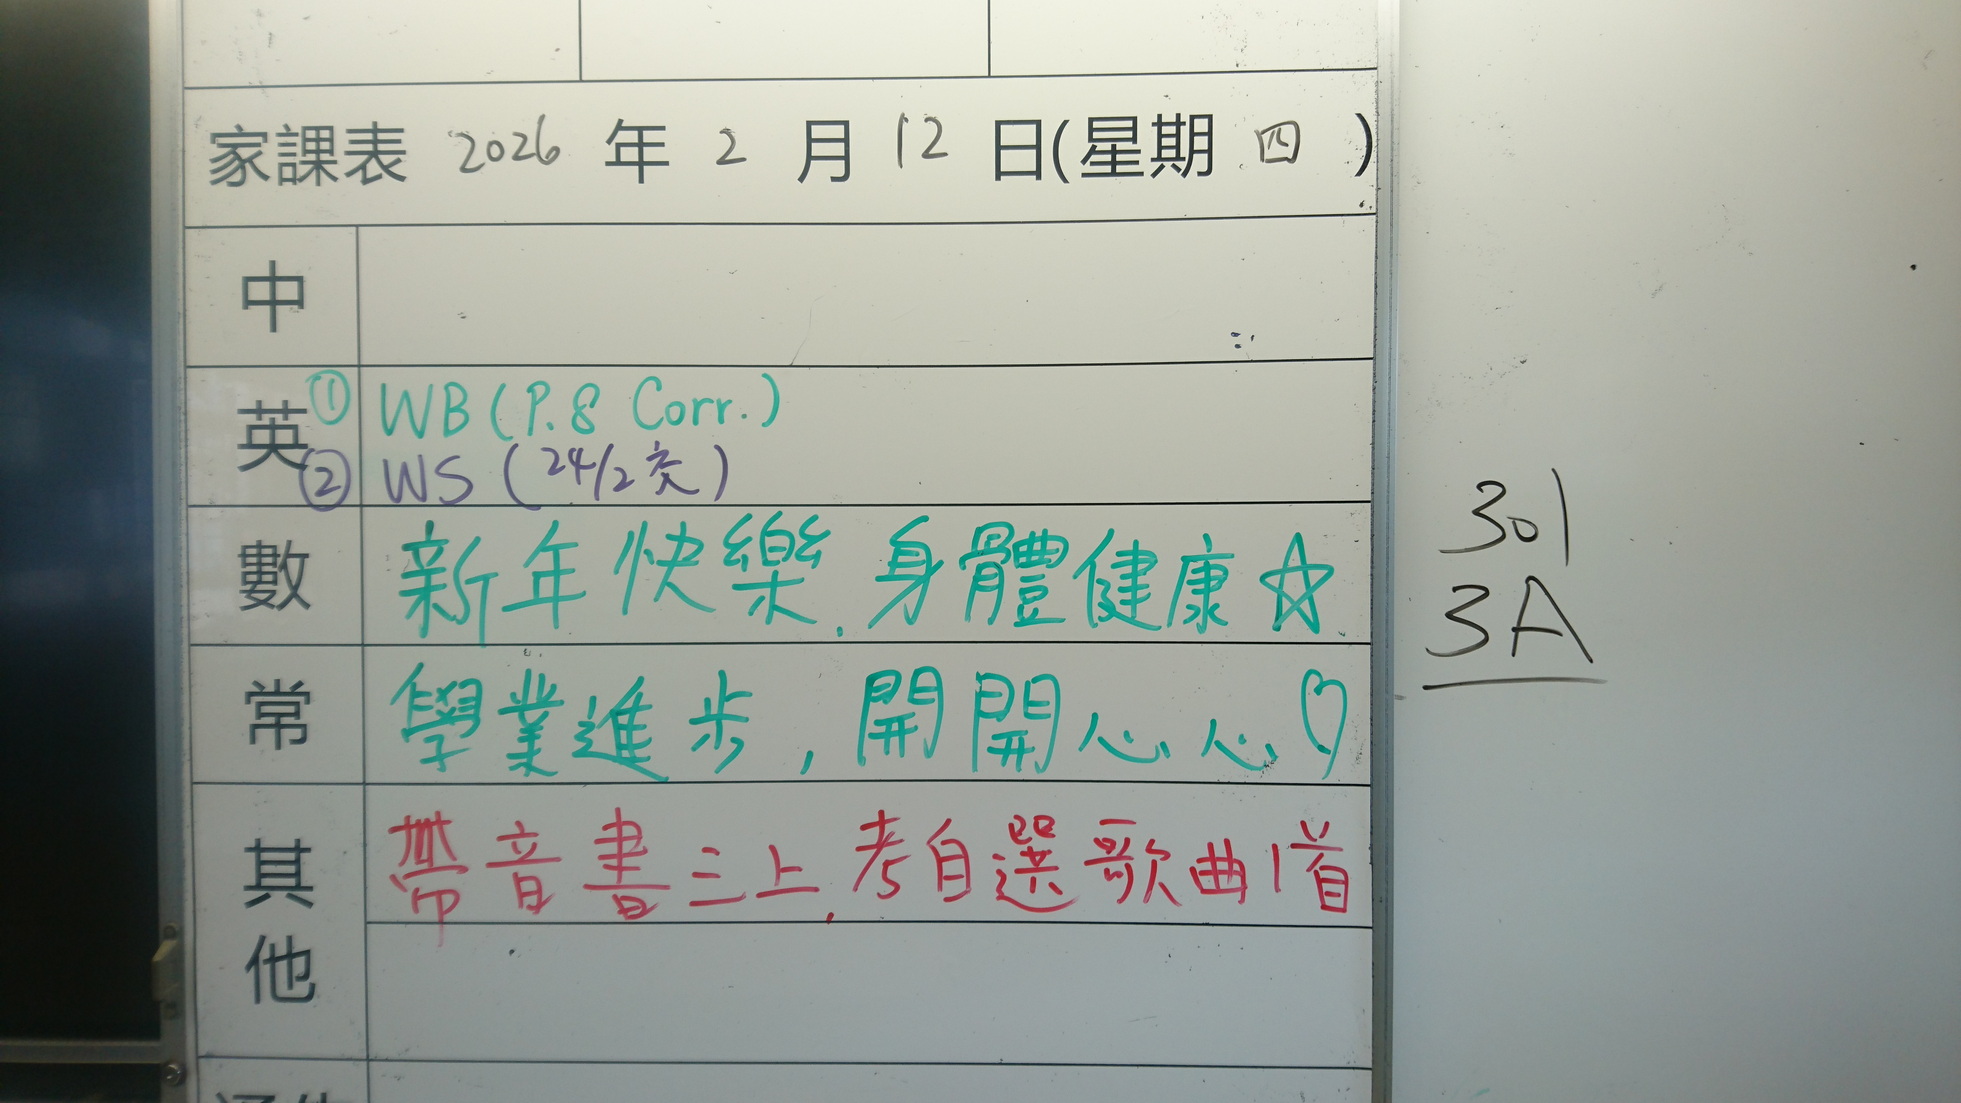 家課表 2026 年 2 月 12 日(星期 四 )
中
英 ① WB (P.8 Corr.)
② WS (24/2交)
數 新年快樂,身體健康☆
常 學業進步,開開心心♡
其他 帶音書三上,考自選歌曲1首
301
3A